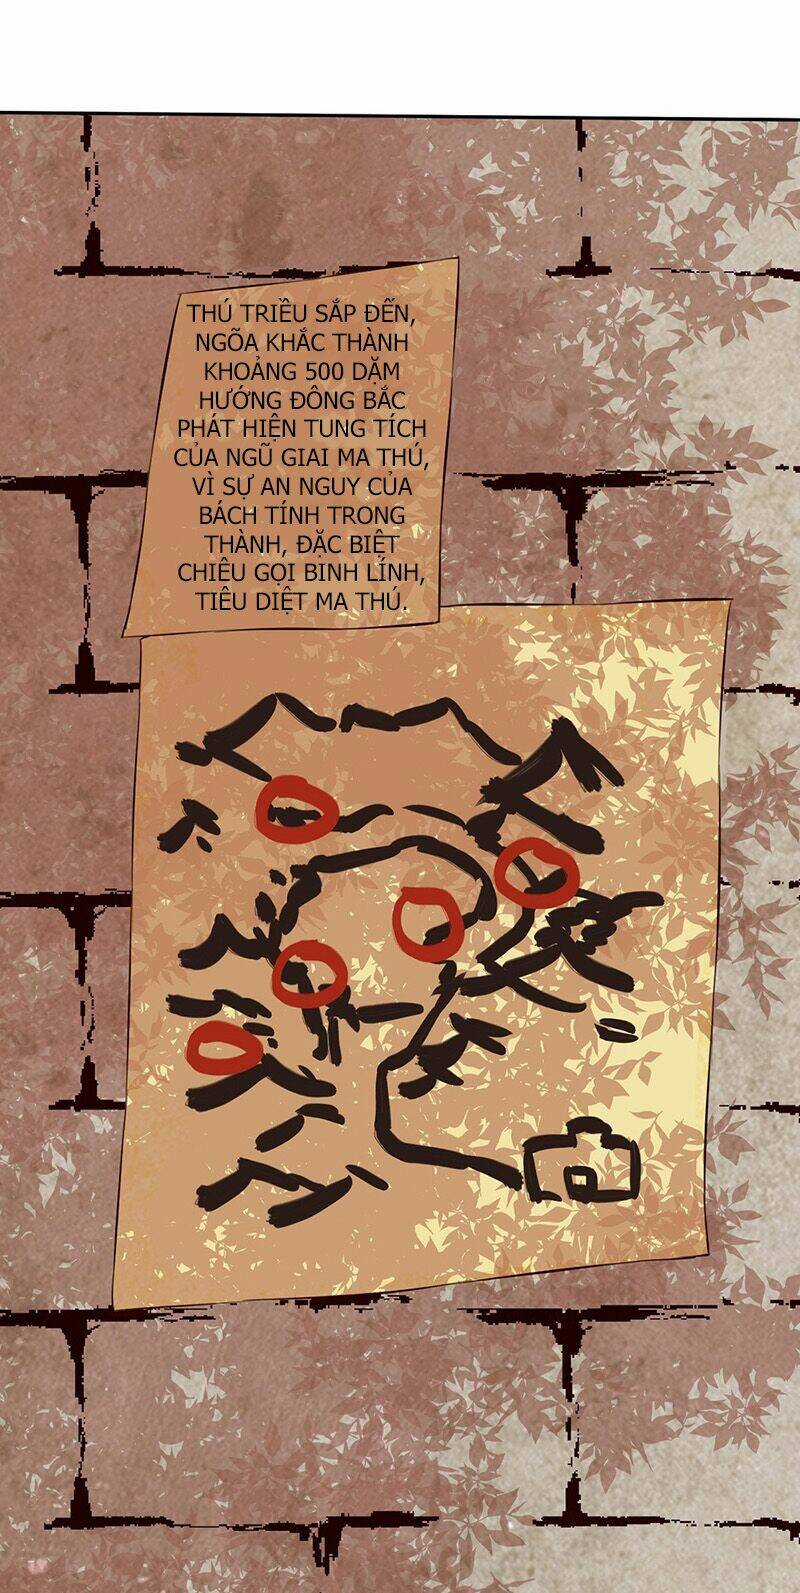 THÚ TRIỀU SẮP ĐẾN,
NGÕA KHẮC THÀNH
KHOẢNG 500 DẶM
HƯỚNG ĐÔNG BẮC
PHÁT HIỆN TUNG TÍCH
CỦA NGŨ GIAI MA THÚ,
VÌ SỰ AN NGUY CỦA
BÁCH TÍNH TRONG
THÀNH, ĐẶC BIỆT
CHIÊU GỌI BINH LÍNH,
TIÊU DIỆT MA THÚ.